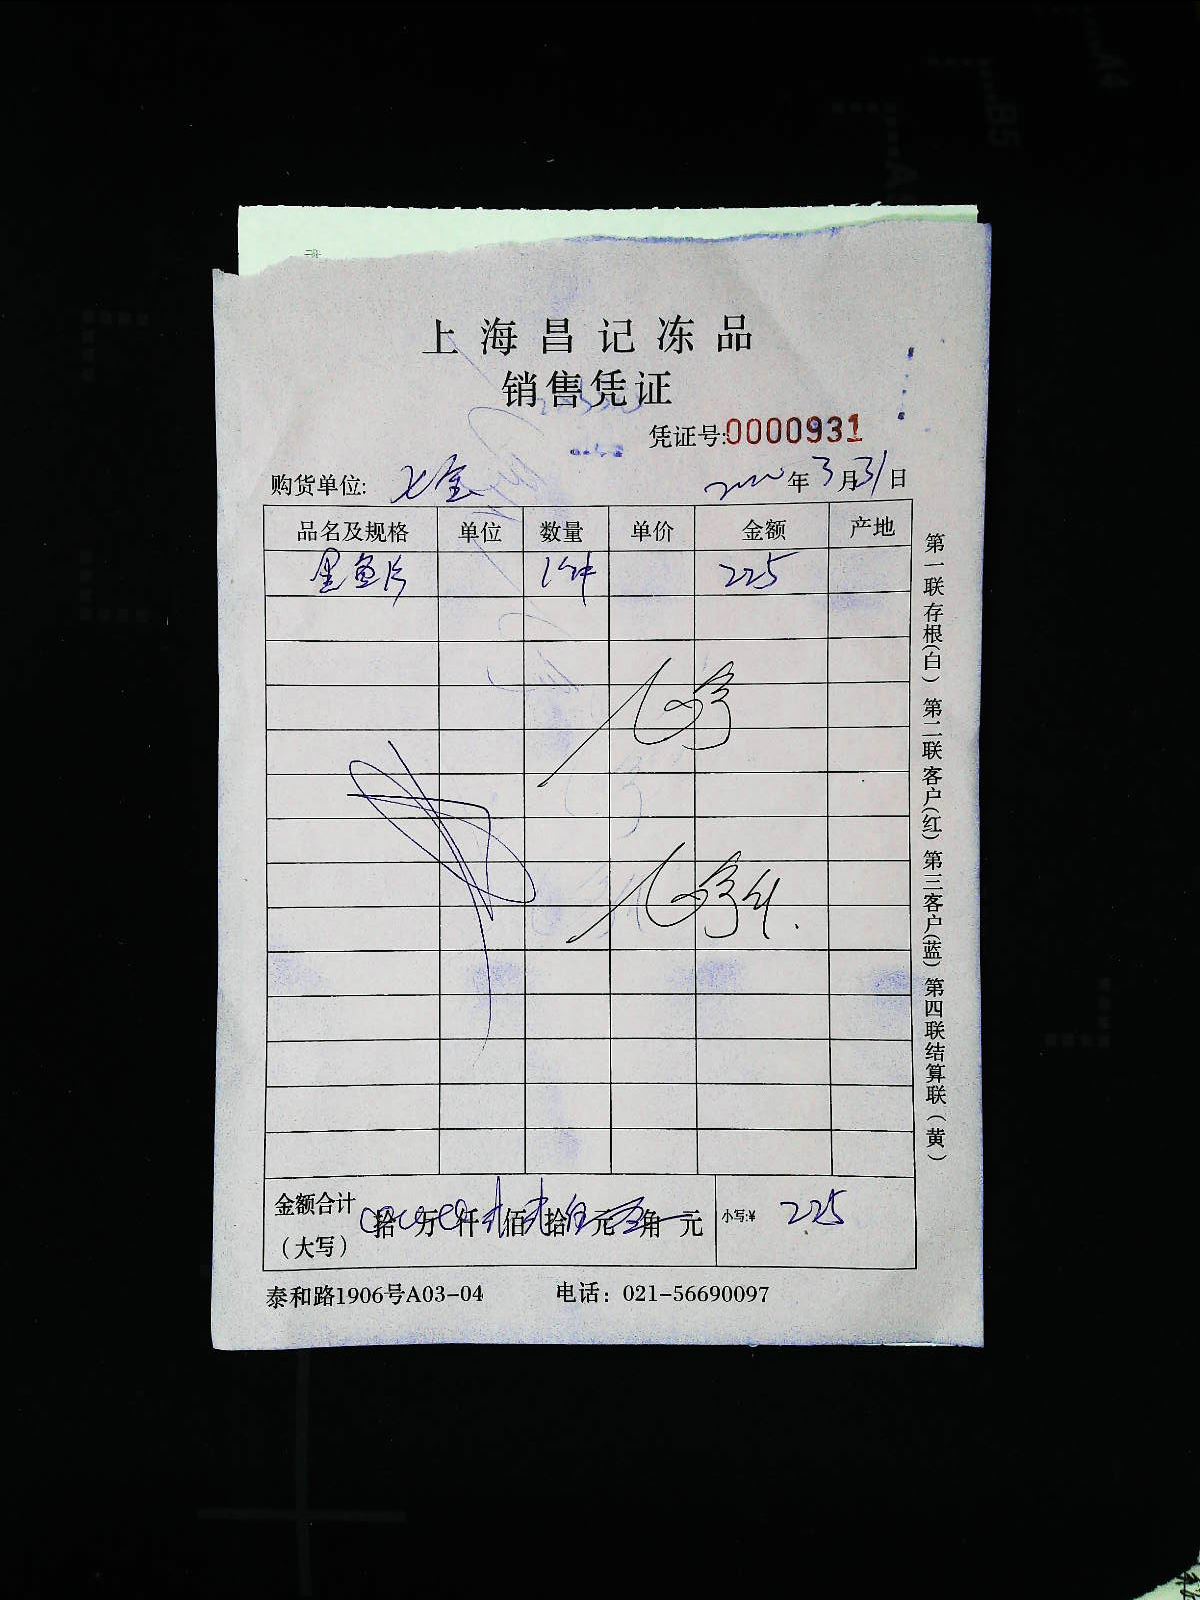 上海昌记冻品
销售凭证
凭证号:0000931
购货单位: 七宝 2020年3月31日
品名及规格 单位 数量 单价 金额 产地
墨鱼片 1件 225
金额合计
(大写) 拾 万 仟 佰 拾 元 角 元 小写:¥ 225
泰和路1906号A03-04 电话: 021-56690097
第一联存根(白) 第二联客户(红) 第三客户(蓝) 第四联结算联(黄)